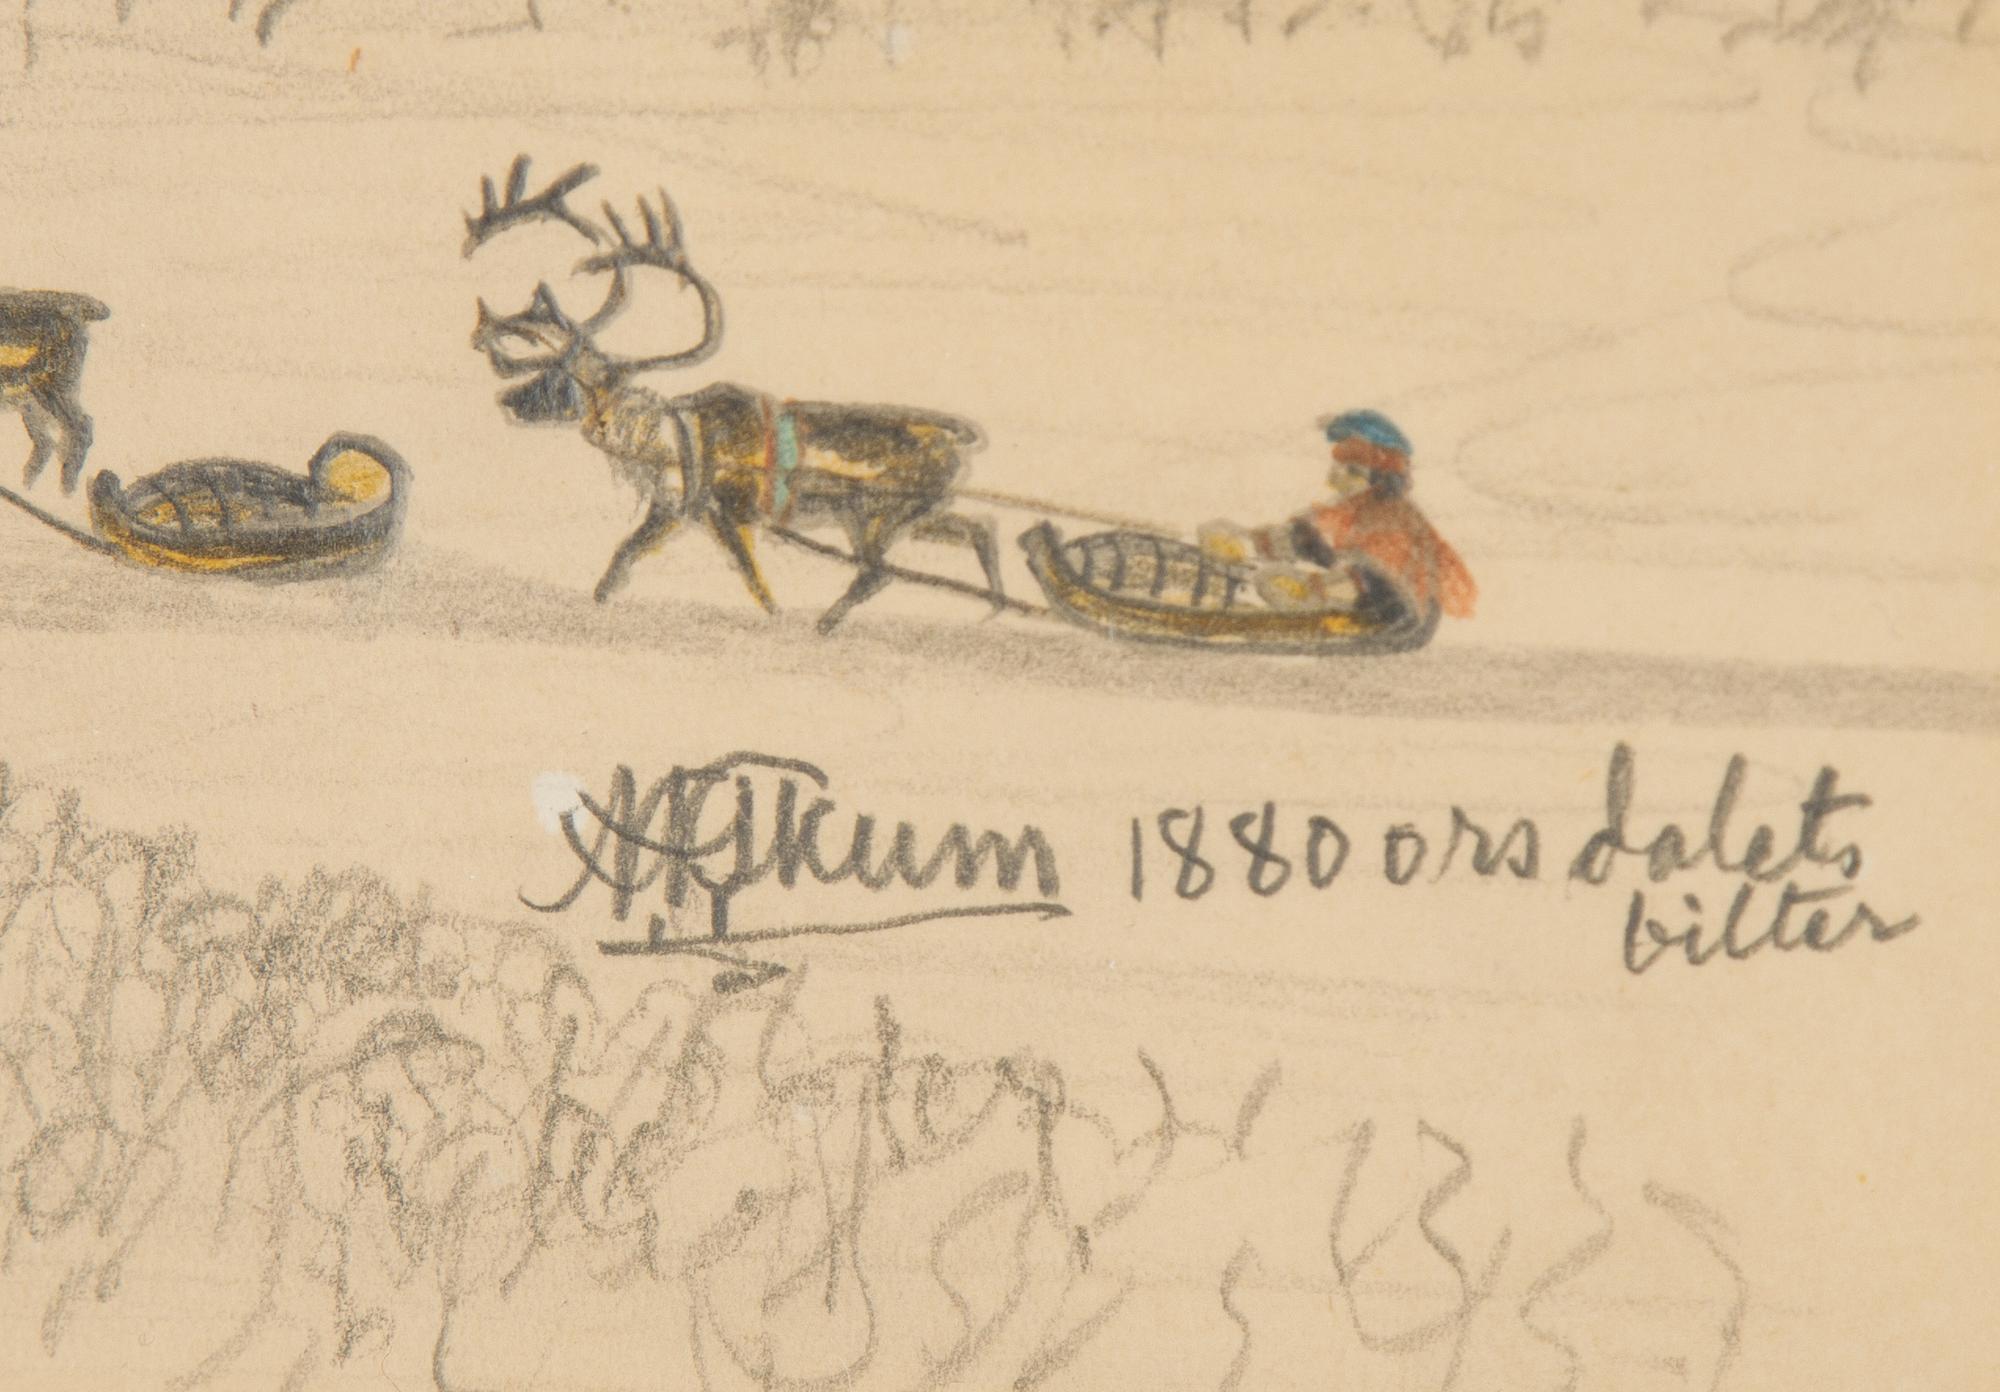 NNSkum 1880 ors dalets
bilter